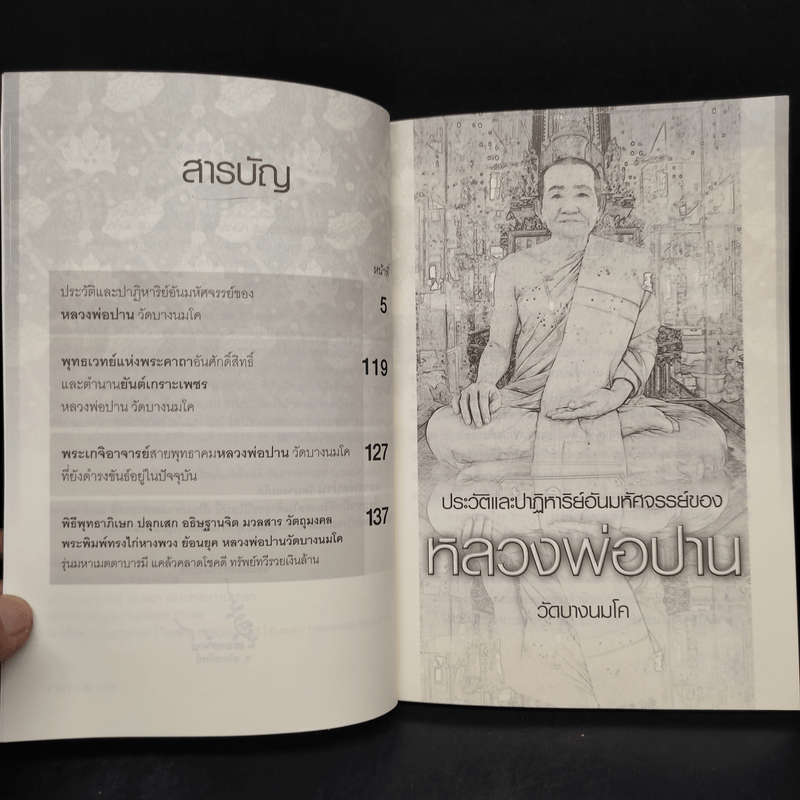 สารบัญ
หน้าที่
ประวัติและปาฏิหาริย์อันมหัศจรรย์ของ
หลวงพ่อปาน วัดบางนมโค
5
พุทธเวทย์แห่งพระคาถาอันศักดิ์สิทธิ์
119
และตำนานยันต์เกราะเพชร
หลวงพ่อปาน วัดบางนมโค
พระเกจิอาจารย์สายพุทธาคมหลวงพ่อปาน วัดบางนมโค
127
ที่ยังดำรงขันธ์อยู่ในปัจจุบัน
พิธีพุทธาภิเษก ปลุกเสก อธิษฐานจิต มวลสาร วัตถุมงคล
137
พระพิมพ์ทรงไก่หางพวง ย้อนยุค หลวงพ่อปานวัดบางนมโค
รุ่นมหาเมตตาบารมี แคล้วคลาดโชคดี ทรัพย์ทวีรวยเงินล้าน
ประวัติและปาฏิหาริย์อันมหัศจรรย์ของ
หลวงพ่อปาน
วัดบางนมโค